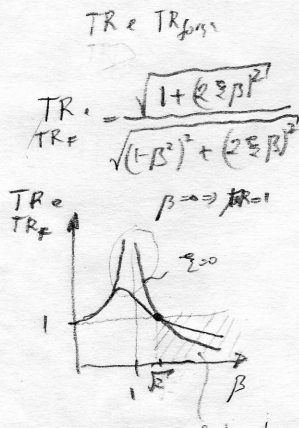 TR e TR força
TR e TR_F = √(1+(2ξβ)²) / √((1-β²)²+(2ξβ)²)
β=0 => TR=1
TR e
TR_F
ξ=0
1
1 √2 β